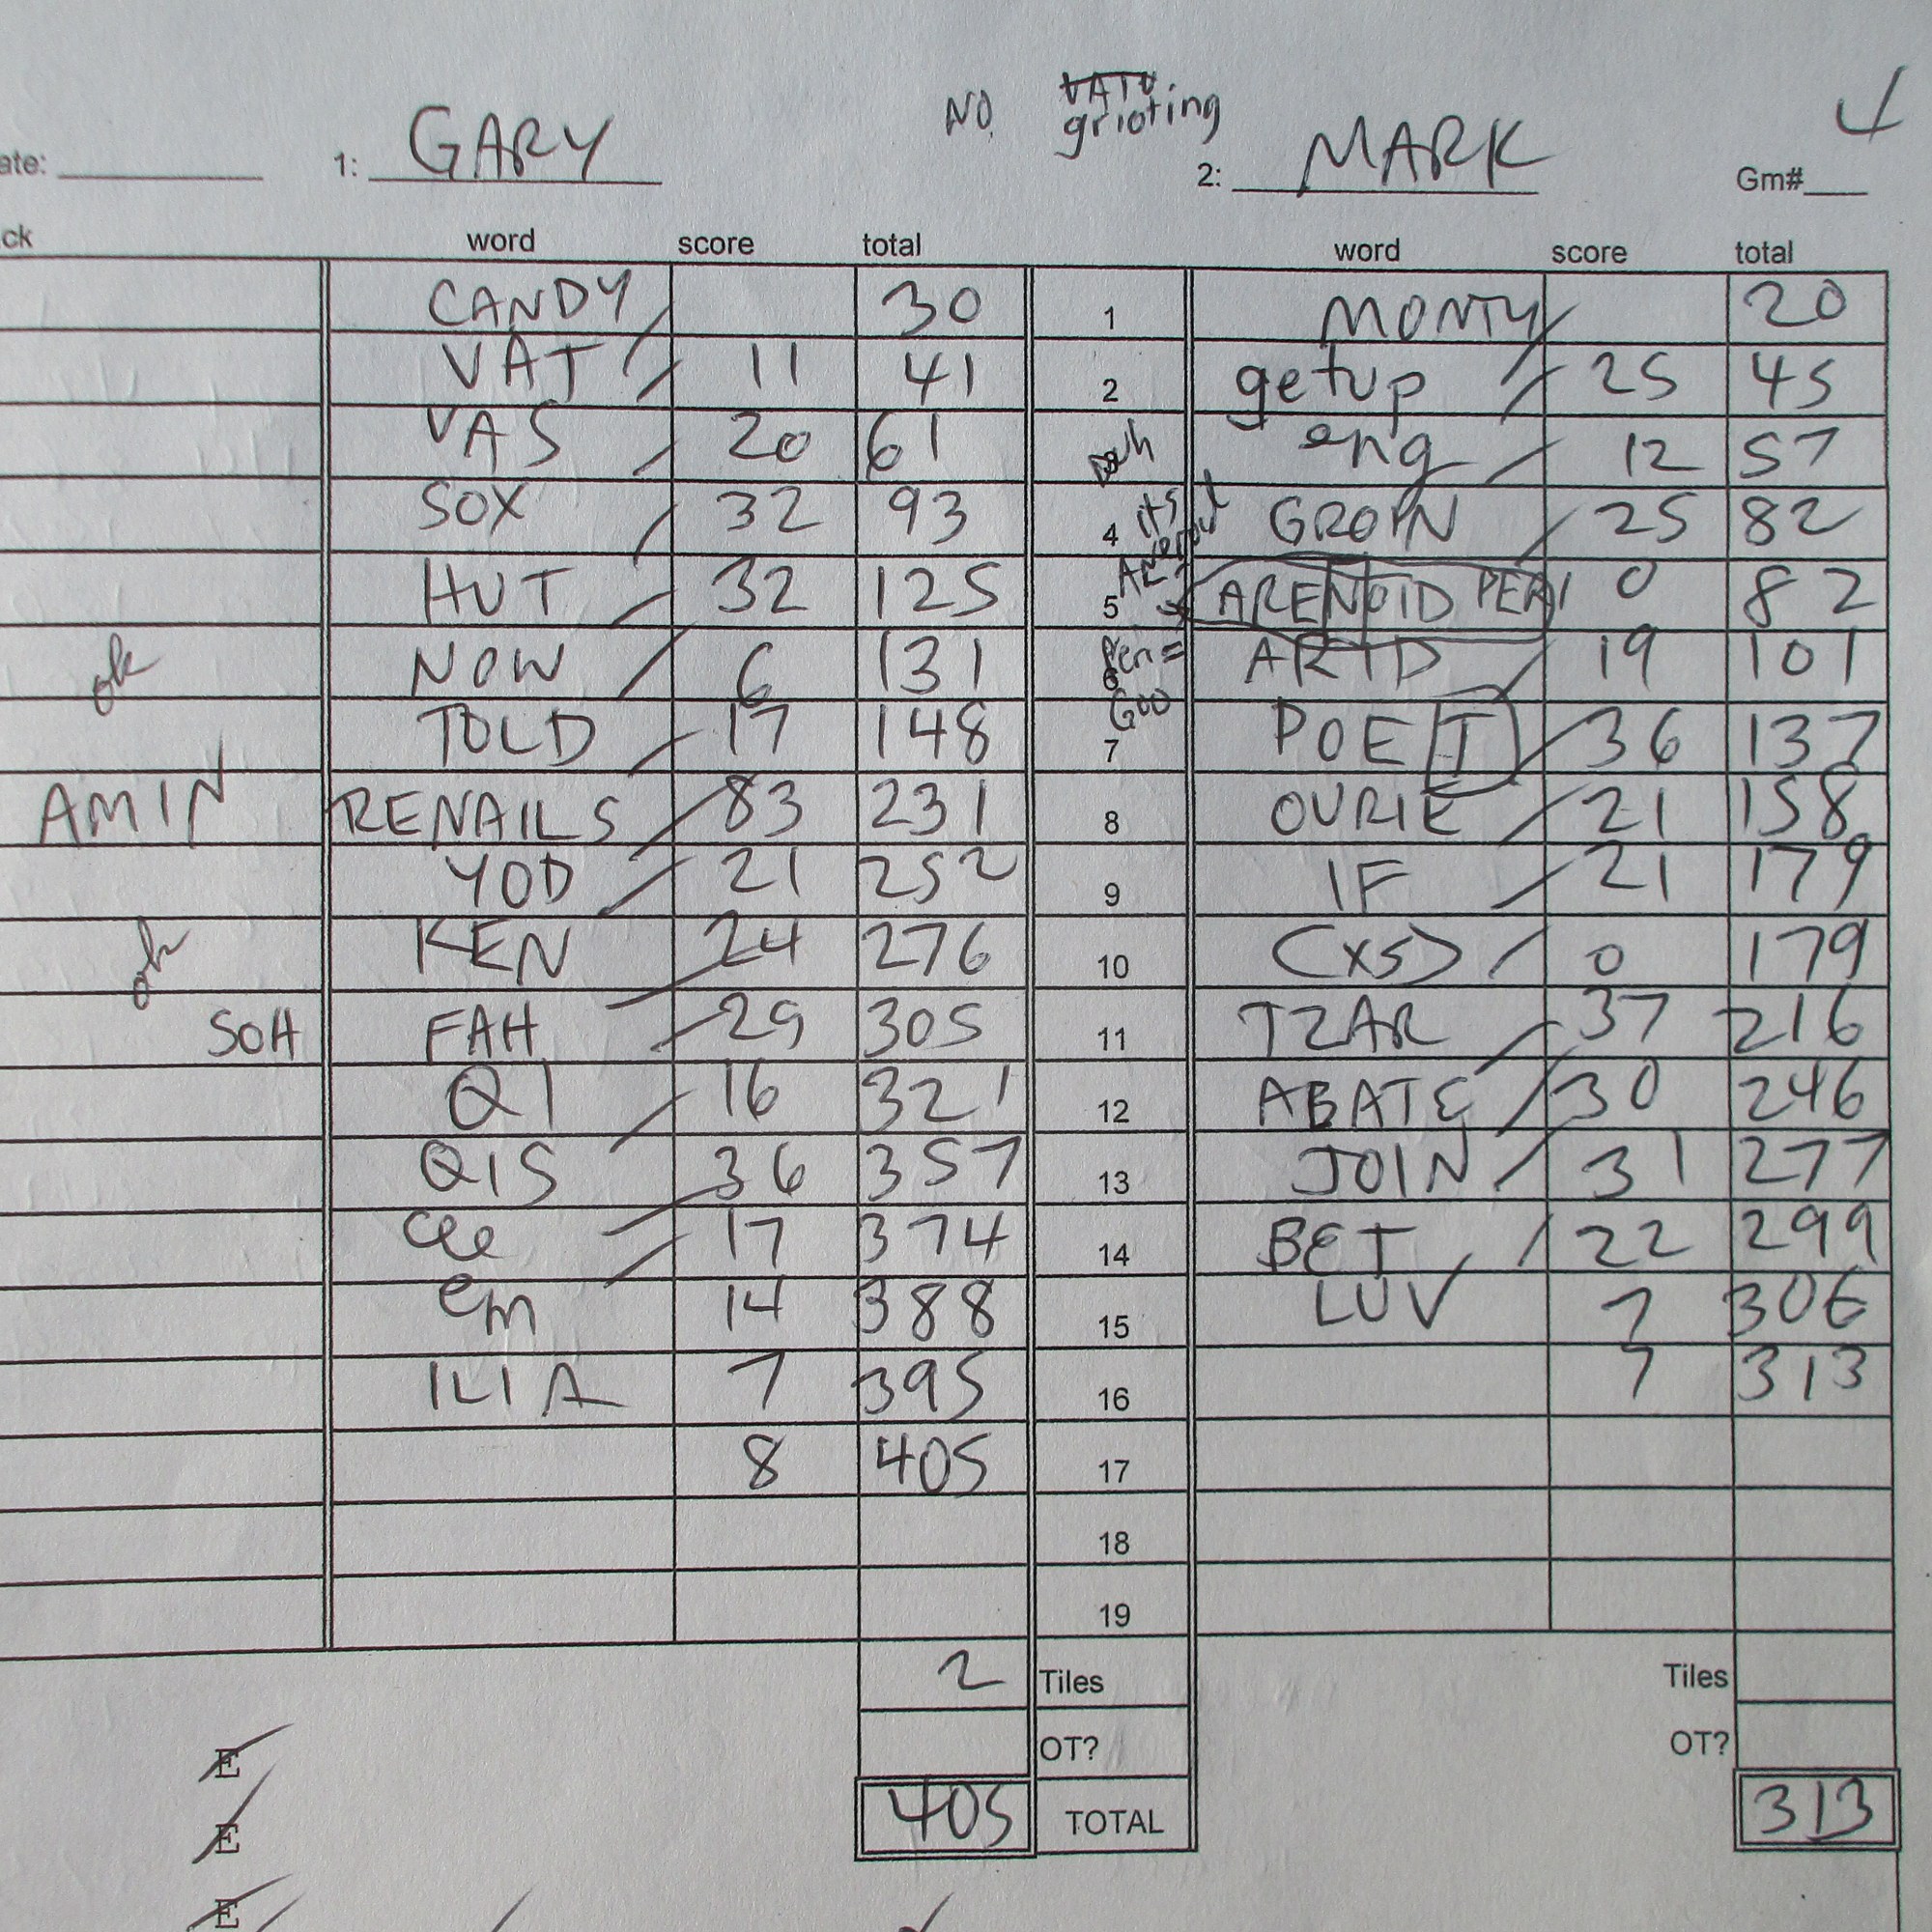 NO. VATU
grioting
4
ate: 1: GARY 2: MARK Gm#
ck word score total word score total
CANDY 30 1 MONTY 20
VAT 11 41 2 getup 25 45
VAS 20 61 eng 12 57
SOX 32 93 4 its GROIN 25 82
HUT 32 125 5 ARENOID PERI 0 82
ok NOW 6 131 6 ARID 19 101
TOLD 17 148 7 POET 36 137
AMIN RENAILS 83 231 8 OURIE 21 158
YOD 21 252 9 IF 21 179
ok KEN 24 276 10 (X5) 0 179
SOH FAH 29 305 11 TZAR 37 216
QI 16 321 12 ABATE 30 246
QIS 36 357 13 JOIN 31 277
cee 17 374 14 BET 22 299
em 14 388 15 LUV 7 306
ILIA 7 395 16 7 313
8 405 17
18
19
2 Tiles Tiles
OT? OT?
405 TOTAL 313
E
E
E